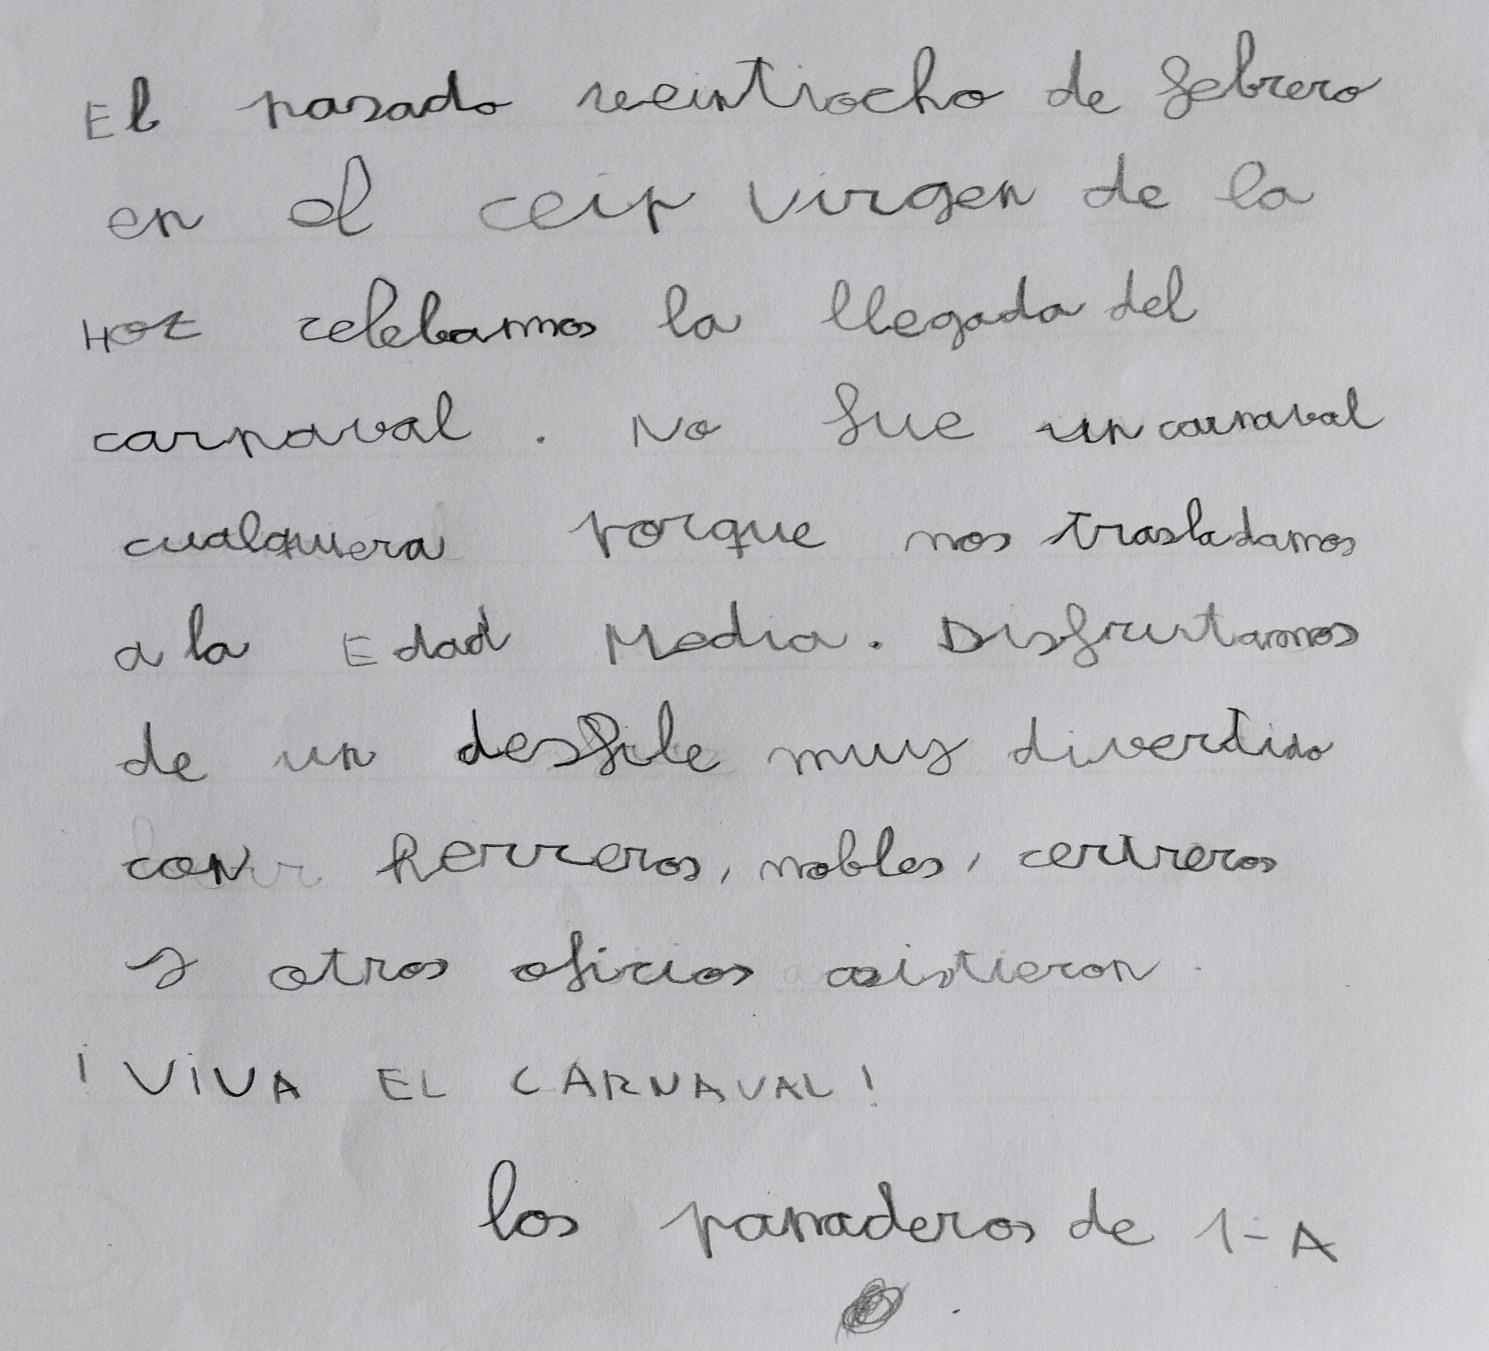 El pasado veintiocho de febrero
en el ceip Virgen de la
Hoz celebamos la llegada del
carnaval . No fue un carnaval
cualquiera porque nos trasladamos
a la Edad Media. Disfrutamos
de un desfile muy divertido
con herreros, nobles, cetreros
y otros oficios asistieron.
¡VIVA EL CARNAVAL!
los panaderos de 1-A